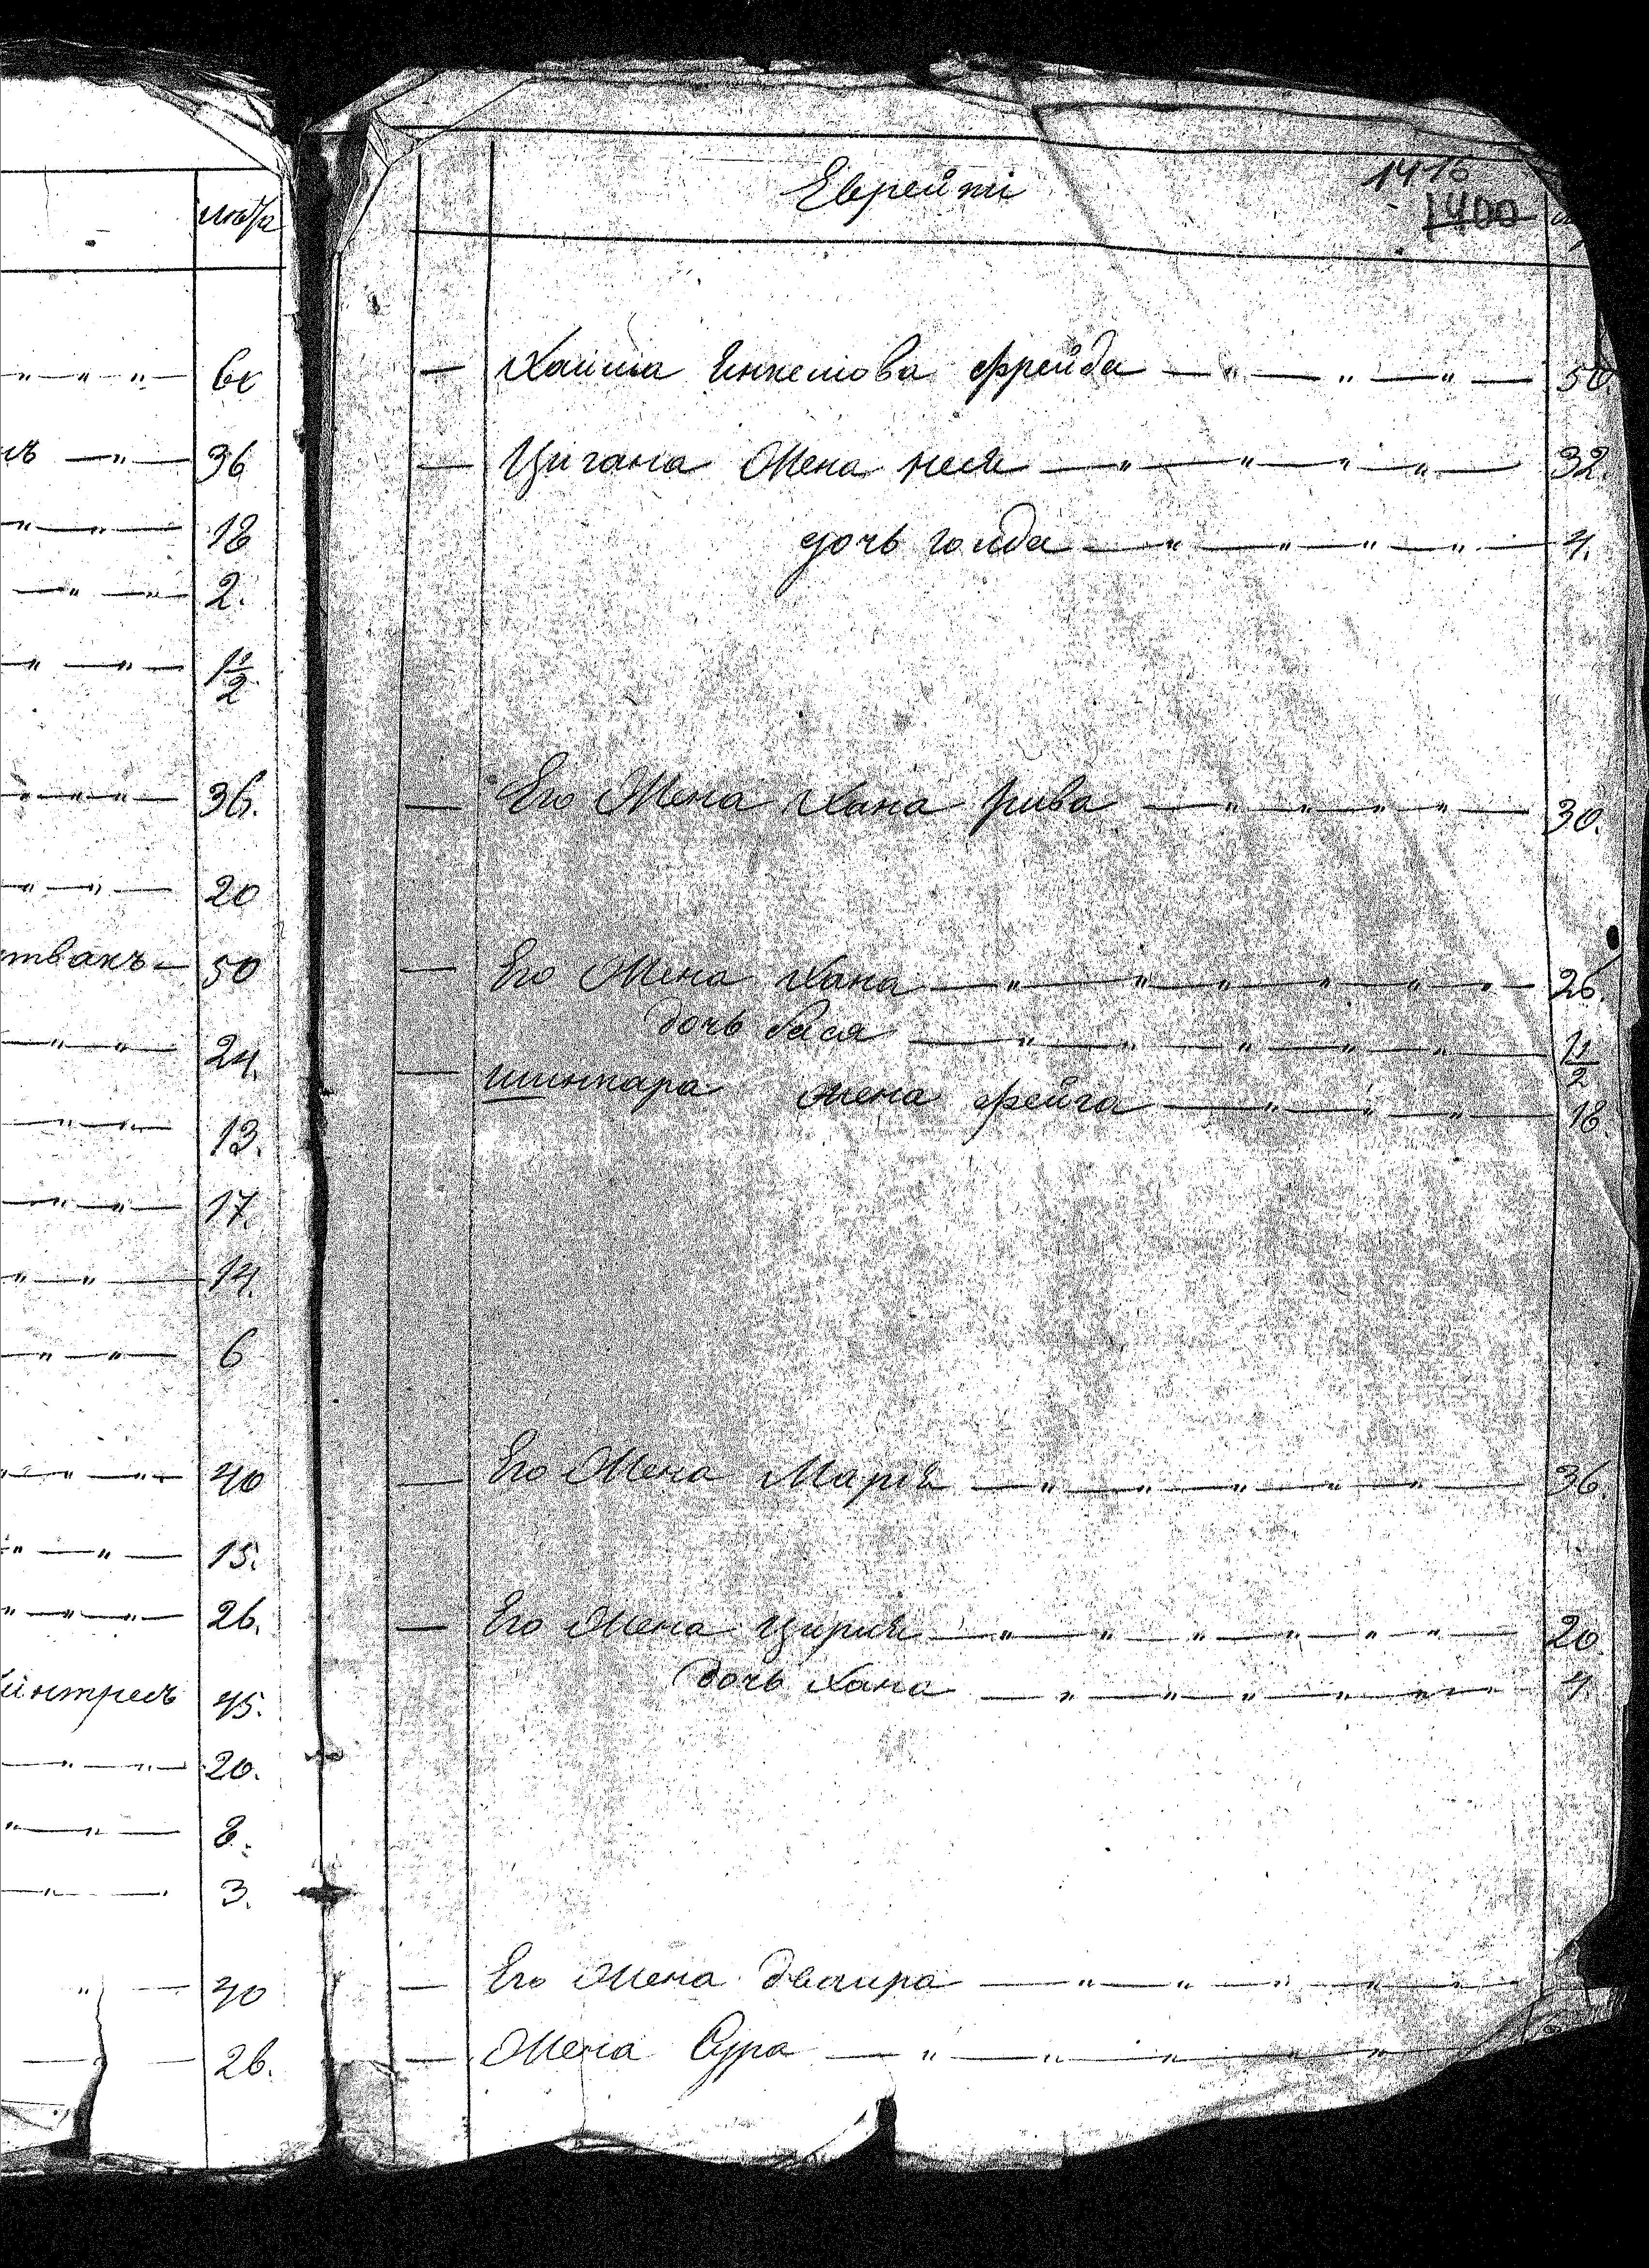 лѣта
60
36
18
2.
1 1/2
36.
20
твакъ — 50
24.
13.
17.
14.
6
40
15.
26.
45.
20.
8.
3.
40
26.
1415
Еврейкі
1400
— Хаима Інкелиова фрейда — " — " — " — 50.
— Цигана Жена неся — " — " — " — " — 32.
дочь голда — " — " — " — " — 4.
— Его Жена Хана рива — " — " — " — " — 30.
— Его Жена Хана — " — " — " — " — " — " — 26.
дочь бася — " — " — " — " — " — 1 1/2
— шинкара жена фейга — " — " — " — 18.
— Его Жена Марія — " — " — " — " — " — 36.
— Его Жена Цирля — " — " — " — " — " — 20
дочь Хана — " — " — " — " — " — 4.
— Его Жена двойра — " — " — " — " — "
— Жена Сура — " — " — " — "